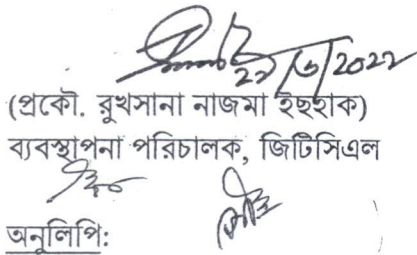 (প্রকৌ. রুখসানা নাজমা ইছহাক)
ব্যবস্থাপনা পরিচালক, জিটিসিএল
অনুলিপি: